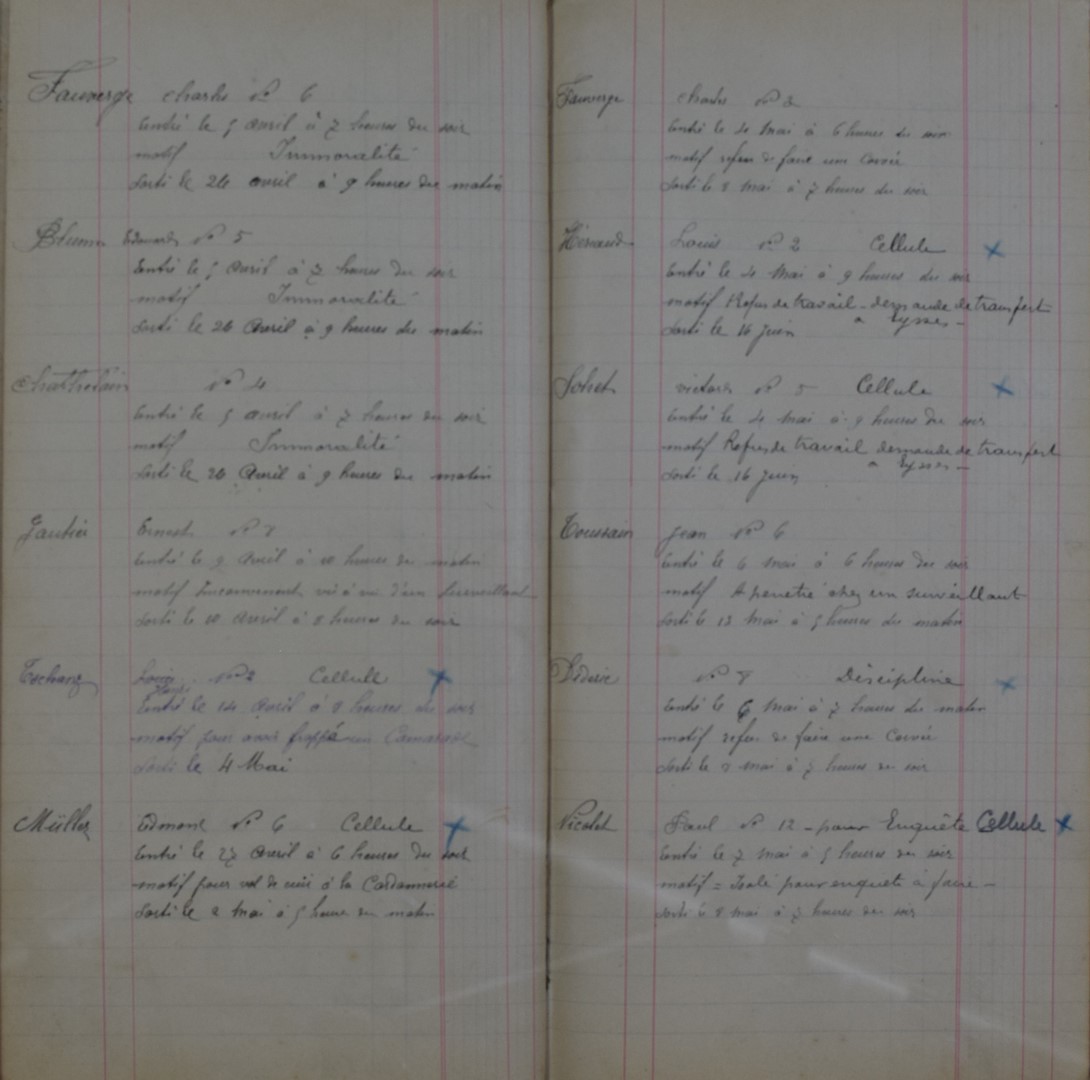 Fauverge Charles N° 6
Entré le 5 avril à 7 heures du soir
motif Immoralité
Sorti le 26 avril à 9 heures du matin
Blumn Edouard N° 5
Entré le 5 avril à 7 heures du soir
motif Immoralité
Sorti le 26 Avril à 9 heures du matin
Chathelain N° 4
Entré le 5 avril à 7 heures du soir
motif Immoralité
Sorti le 26 Avril à 9 heures du matin
Gautier Ernest N° 8
Entré le 9 avril à 10 heures du matin
motif vis à vis d'un surveillant
Sorti le 10 avril à 8 heures du soir
Louis N° 2 Cellule
Henri
Entré le 14 avril à 8 heures du soir
motif pour avoir frappé un Camarade
Sorti le 4 Mai
Müller Edmond N° 6 Cellule
Entré le 27 Avril à 6 heures du soir
motif pour vol de cuir à la Cordonnerie
Sorti le 2 Mai à 5 heures du matin
Fauverge Charles N° 2
Entré le 4 Mai à 6 heures du soir
motif refus de faire une Corvée
Sorti le 8 Mai à 7 heures du soir
Louis N° 2 Cellule
Entré le 4 Mai à 9 heures du soir
motif Refus de travail - demande de transfert
a Eysses -
Sorti le 16 juin
Sohet Victor N° 5 Cellule
Entré le 4 mai à 9 heures du soir
motif Refus de travail demande de transfert
a Eysses -
Sorti le 16 juin
Toussain Jean N° 6
Entré le 6 mai à 6 heures du soir
motif A penetré chez un surveillant
Sorti le 13 Mai à 5 heures du matin
Dideric N° 8 Discipline
Entré le 6 Mai à 7 heures du matin
motif refus de faire une Corvée
Sorti le 8 mai à 7 heures du soir
Nicolet Paul N° 12 - pour Enquête Cellule
Entré le 7 mai à 5 heures du soir
motif = Isolé pour enquete à faire -
Sorti le 8 mai à 7 heures du soir